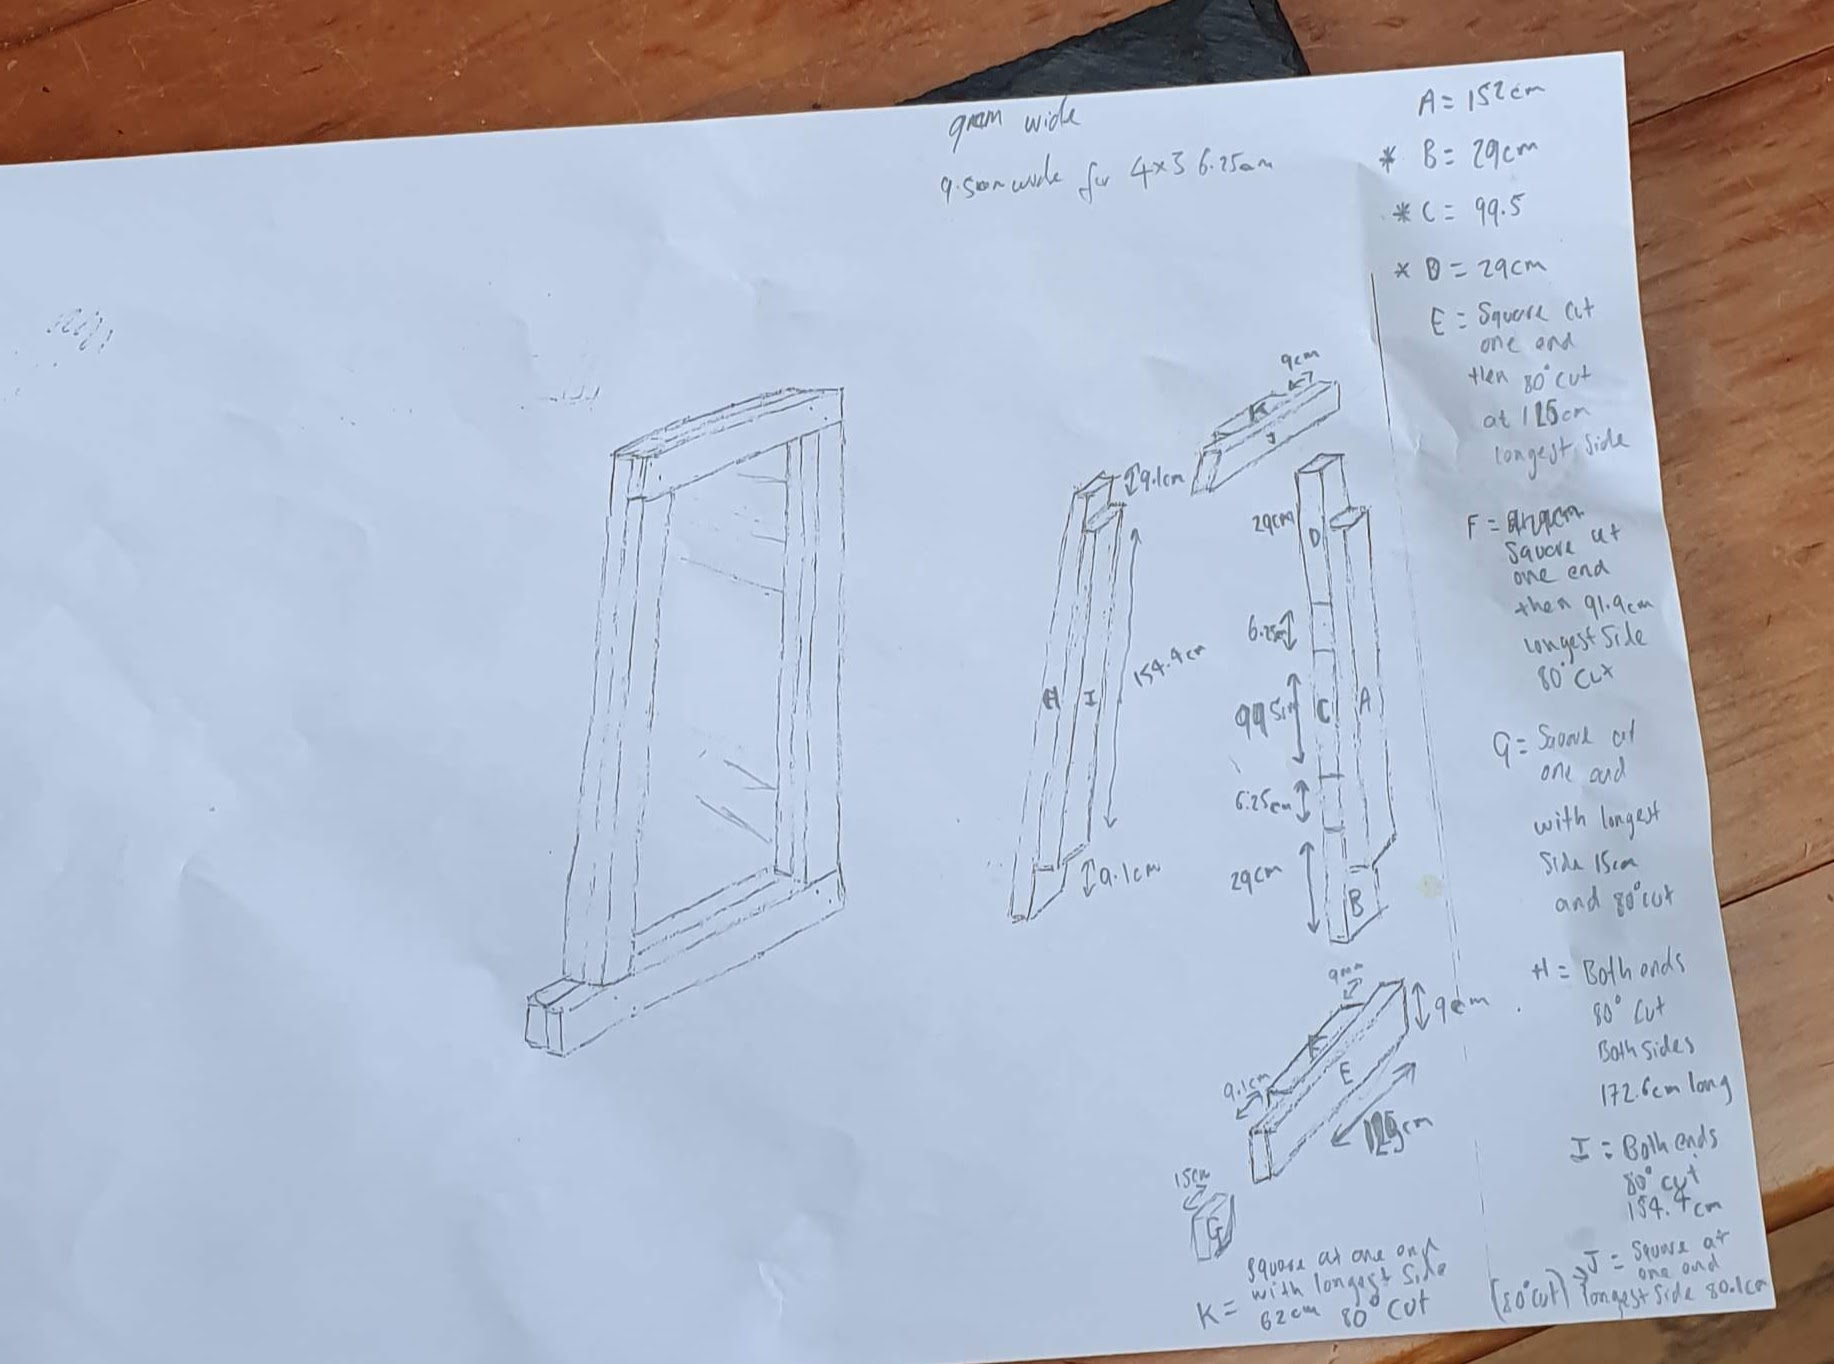 wide
wide for 4x3 6.25cm
A = 152cm
* B = 29cm
* C = 99.5
* D = 29cm
E = Square at
one end
then 80° cut
at 125cm
longest side
F =
Square at
one end
then 91.9cm
longest side
80° cut
G = Square at
one end
with longest
Side 15cm
and 80° cut
H = Both ends
80° cut
Both sides
172.6cm long
I = Both ends
80° cut
154.4cm
J = Square at
one end
(80° cut) longest side 80.1cm
9cm
K
J
9.1cm
29cm
D
6.25
154.4cm
H
I
99.5
C
A
6.25cm
9.1cm
29cm
B
9cm
E
9.1cm
125cm
15cm
G
Square at one end
with longest side
K = 62cm 80° cut